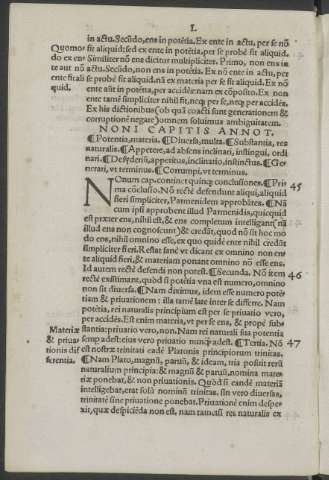 I.
in actu. Secũdo, ens in potẽtia. Ex ente in actu, per se nõ
Quomo⸗ fit aliquid: sed ex ente in potẽtia, per se probè fit aliquid.
do ex en⸗ Similiter nõ ens dicitur multipliciter. Primo, non ens in
te aut nõ actu. Secũdo, non ens in potẽtia. Ex nõ ente in actu, per
ente fit ali se probè fit aliquid. nã ex materia per se fit aliquid. Ex nõ
quid. ente aũt in potẽtia, per accidẽs: nam ex cõposito. Ex non
ente tamẽ simpliciter nihil fit, neq; per se, neq; per accidẽs.
Ex his dictionibus (ob quã coacti sunt generationem &
corruptionẽ negare) omnem soluimus ambiguitatem.
NONI CAPITIS ANNOT.
¶ Potentia, materia. ¶ Diuersa, multa. ¶ Substantia, res
naturalis. ¶ Appetere, ad absens inclinari, instingui, ordi
nari. ¶ Desyderiũ, appetitus, inclinatio, instinctus. ¶ Ge⸗
nerari, vt terminus. ¶ Corrumpi, vt terminus.
NOnum cap. continet quinq; conclusiones. ¶ Pri 45
ma cõclusio. Nõ rectè defendunt aliqui, aliquid
fieri simpliciter, Parmenidem approbãtes. ¶ Nã
cum ipsi approbent illud Parmenidis, quicquid
est præter ens, nihil est, & ens completum intelligant (nã
illud ens non cognoscunt) & credãt, quod nõ sit hoc mo
do ens, nihil omnino esse, ex quo quidẽ ente nihil credũt
simpliciter fieri. Restat sanè vt dicant ex omnino non en⸗
te aliquid fieri, & materiam ponant omnino nõ esse ens.
Id autem rectè defendi non potest. ¶ Secunda. Nõ item 46
rectè existimant, quòd si potẽtia vna est numero, omnino
non sit diuersa. ¶ Nam diximus, idem esse numero potẽ
tiam & priuationem: illa tamẽ latè inter se differre. Nam
potẽtia, rei naturalis principium est per se priuatio vero,
per accidẽs. Est enim materia, vt per se ens, & propè sub⸗
Materiæ stantia: priuatio vero, non. Nam rei naturali sua potentia
& priua⸗ semp adest: eius vero priuatio nunq̃ adest. ¶ Tertia. Nõ 47
tionis dif est nostræ trinitati eadẽ Platonis principiorum trinitas.
ferentia. ¶ Nam Plato, magnũ, paruũ, & ideam, tria posuit rerũ
naturalium principia: & magnũ & paruũ, nomina mate⸗
riæ ponebat, & non priuationis. Quòd si eandẽ materiã
intelligebat, erat sola nominũ trinitas. sin vero diuersas,
trinitatẽ sine priuatione ponebat. Priuationẽ enim despe⸗
xit, quæ despiciẽda non est, nam tametsi res naturalis ex